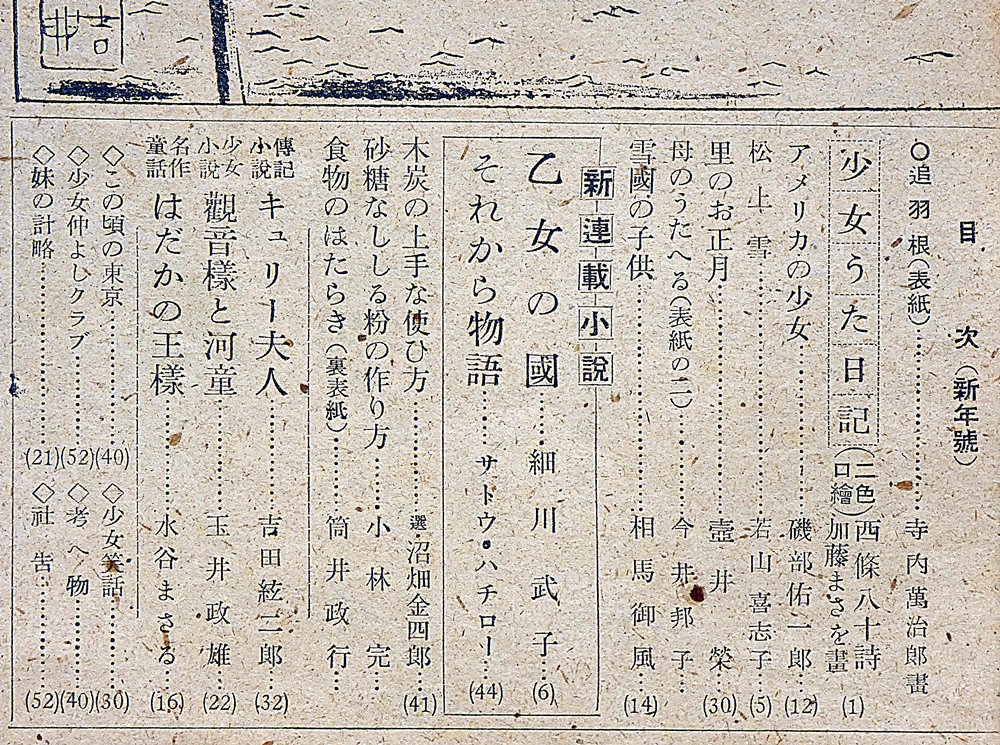 目次（新年號）
○追羽根（表紙）……寺内萬治郎畫
少女うた日記（二色口繪）西條八十詩 加藤まさを畫 (1)
アメリカの少女……磯部佑一郎 (12)
松上雪……若山喜志子 (5)
里のお正月……壺井榮 (30)
母のうたへる（表紙の二）……今井邦子……
雪國の子供……相馬御風 (14)
新連載小説
乙女の國……細川武子…… (6)
それから物語……サトウ・ハチロー… (44)
木炭の上手な使ひ方……選・沼畑金四郎… (41)
砂糖なししる粉の作り方……小林完……
食物のはたらき（裏表紙）……筒井政行……
傳記小説 キュリー夫人……吉田絃二郎 (32)
少女小説 觀音樣と河童……玉井政雄 (22)
名作童話 はだかの王樣……水谷まさる… (16)
◇この頃の東京…… (40)
◇少女仲よしクラブ…… (52)
◇妹の計略…… (21)
◇少女笑話…… (30)
◇考へ物…… (40)
◇社告…… (52)